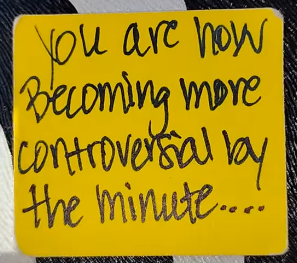 You are now
Becoming more
controversial by
the minute....